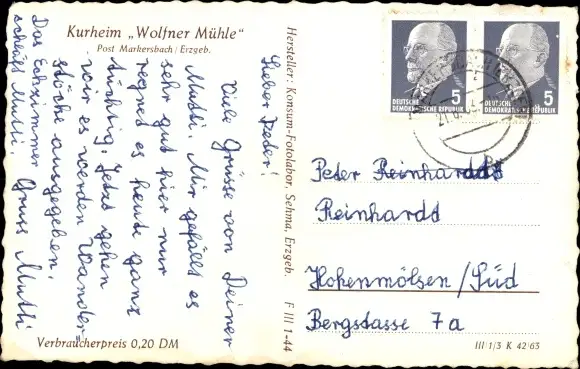 Kurheim „Wolfner Mühle"
Post Markersbach / Erzgeb.
Lieber Peder!
Viele Grüsse von Deiner
Mutti. Mir gefällt es
sehr gut hier nur
regnet es heute ganz
tüchtig. Jetzt gehen
wir es werden Wander=
stöcke ausgegeben.
Das Eckzimmer
schläft Mutti. Gruss Mutti
Verbraucherpreis 0,20 DM
Hersteller: Konsum-Fotolabor, Sehma, Erzgeb. F III 1-44
DEUTSCHE
DEMOKRATISCHE REPUBLIK 5
DEUTSCHE
DEMOKRATISCHE REPUBLIK 5
Peder Reinhardd
Reinhardd
Hohenmölsen/Süd
Bergstasse 7a
III/1/3 K 42/63